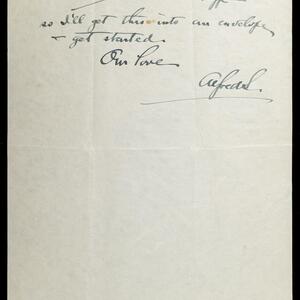 so I'll get this into an envelope
& get started.
Our love
Alfred.